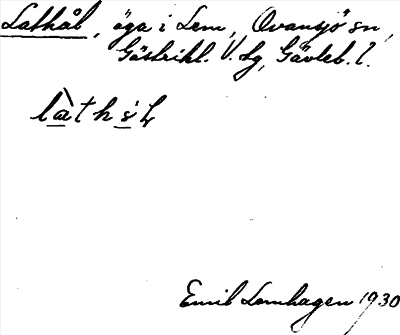 Lathål, äga i Lem, Ovansjö sn,
Gästrikl. V. tg, Gävleb. l.
Emil Lomhagen 1930